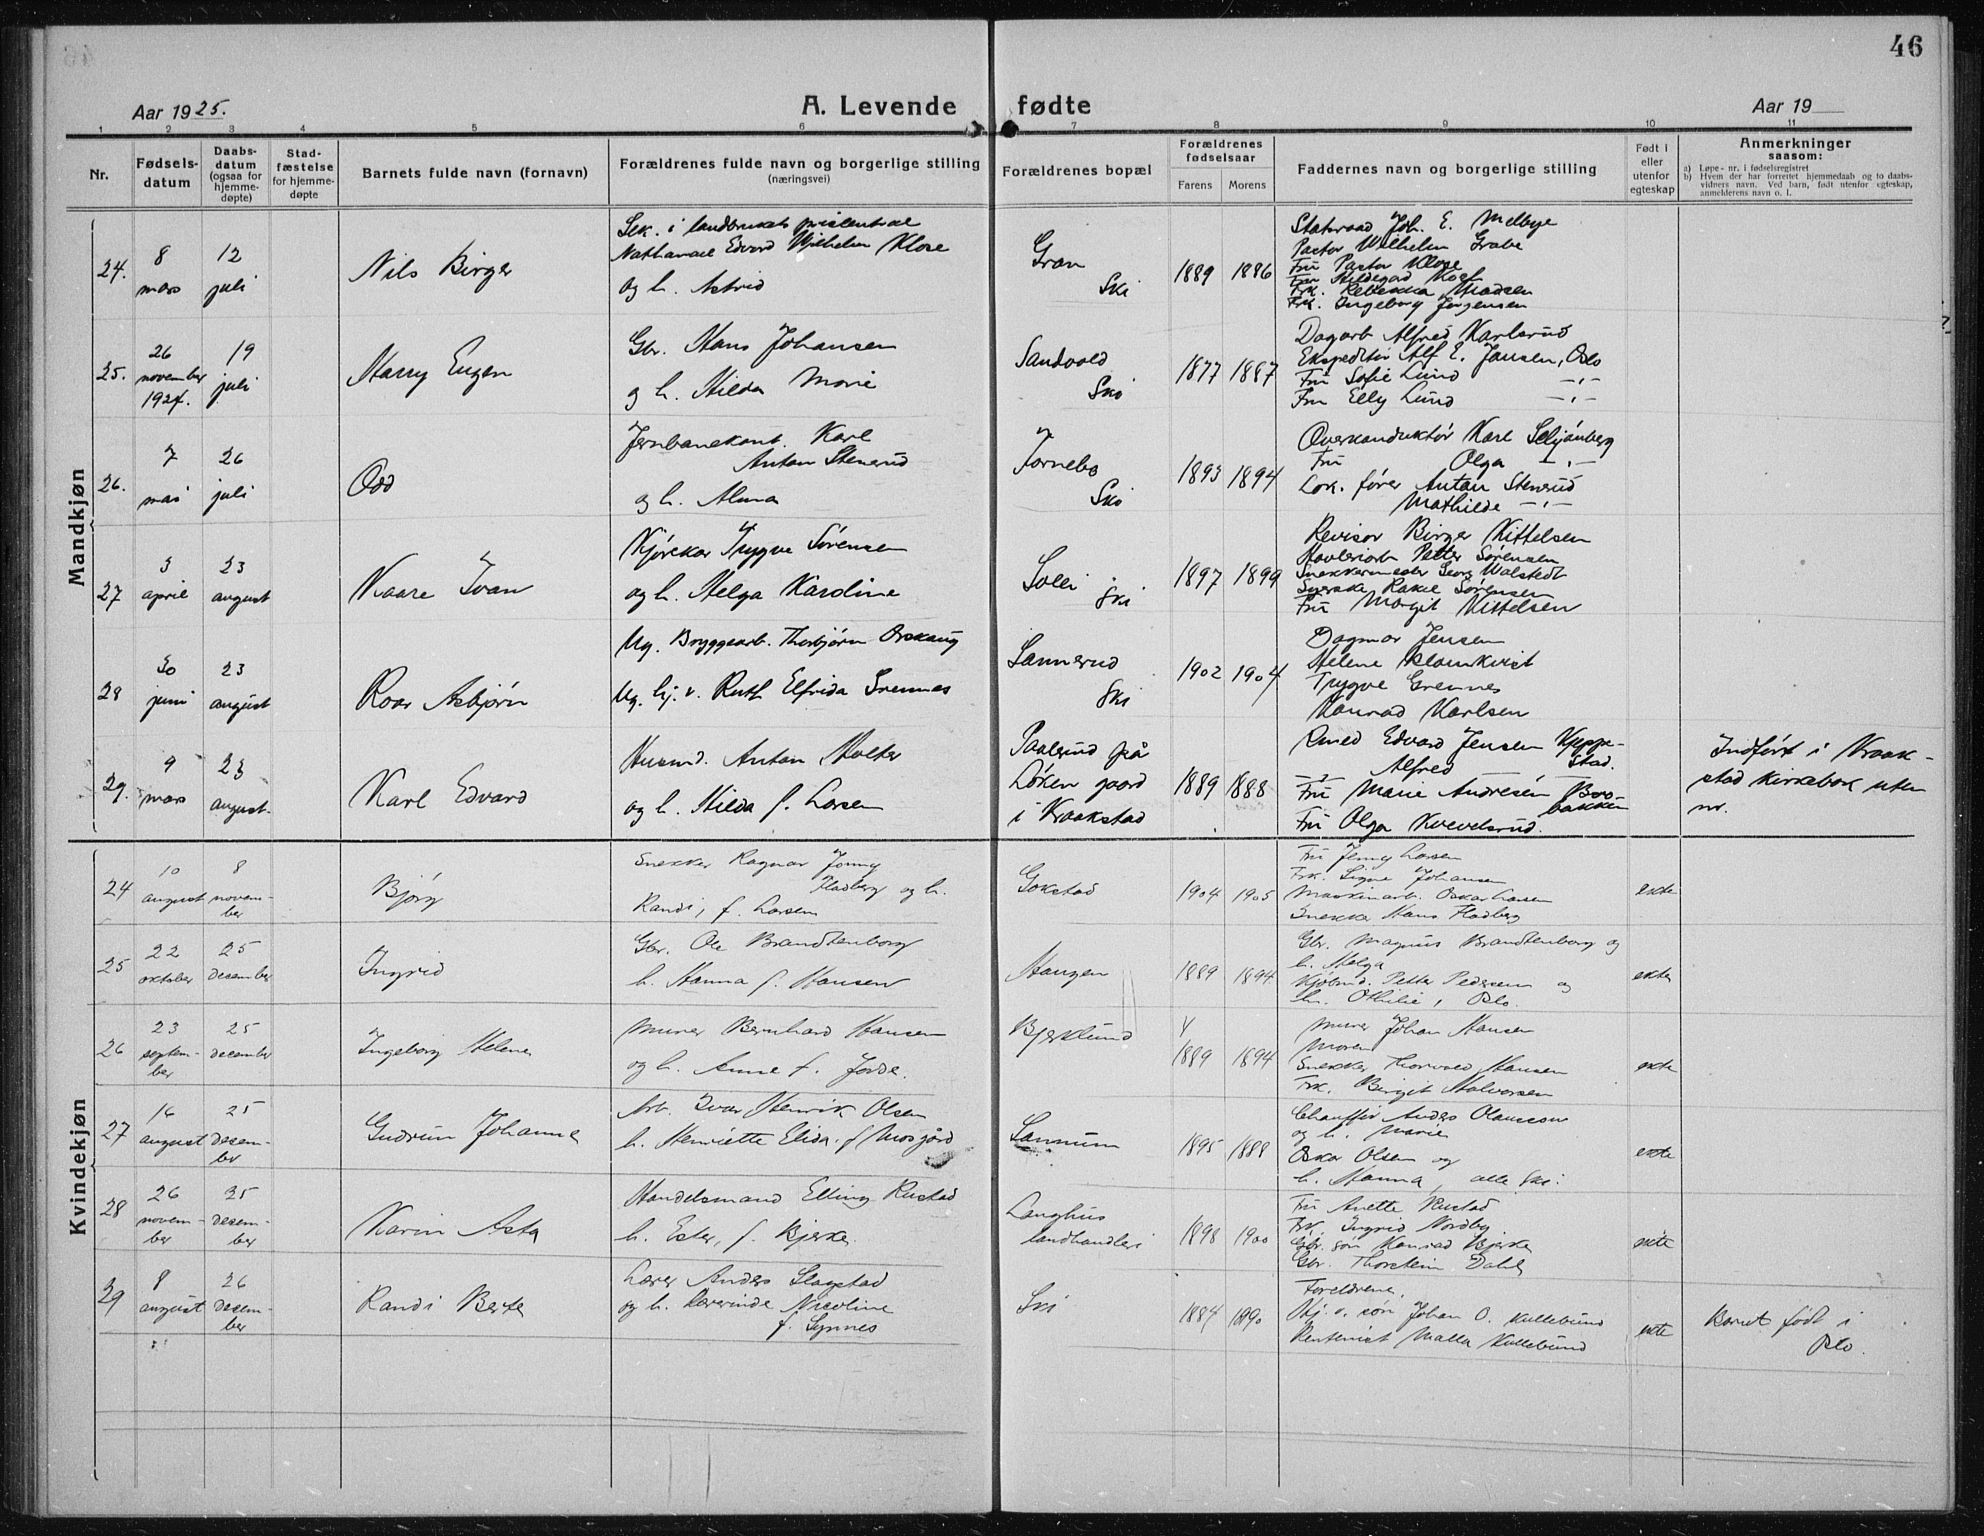 46
Aar 1925.
A. Levende fødte
Aar 19
1 2 3 4 5 6 7 8 9 10 11
Nr.
Fødsels-
datum
Daabs-
datum
(ogsaa for
hjemme-
døpte)
Stad-
fæstelse
for hjemme-
døpte
Barnets fulde navn (fornavn)
Forældrenes fulde navn og borgerlige stilling
(næringsvei)
Forældrenes bopæl
Forældrenes
fødselsaar
Farens
Morens
Faddernes navn og borgerlige stilling
Født i
eller
utenfor
egteskap
Anmerkninger
saasom:
a) Løpe-nr. i fødselsregistret
b) Hvem der har forrettet hjemmedaab og to daabs-
vidners navn. Ved barn, født utenfor egteskap,
anmelderens navn o. l.
Mandkjøn
24.
8
mars
12
juli
Nils Birger
Sek. i landbrukets priscentrale
Nathanael Edvard Wilhelm Klose
og h. Astrid
Gran
Ski
1889 1886
Statsraad Joh. E. Melbye
Pastor Wilhelm Grabe
Fru Pastor Klose
Fru Hildegad
Frk. Rebekka Madsen
Frk. Ingeborg Jørgensen
25.
26
november
1924.
19
juli
Harry Eugen
Gbr. Hans Johansen
og h. Hilda Marie
Sandvold
Ski
1877 1887
Dagarb Alfred Karlsrud
Ekspeditør Alf E. Jansen, Oslo
Fru Sofie Lund —"—
Fru Elly Lund —"—
26.
7
mai
26
juli
Odd
Jernbanekont. Karl
Anton Stensrud
og h. Alma
Tornebo
Ski
1893 1894
Overkonduktør Karl
Fru Olga —"—
Lok. fører Anton Stensrud
Mathilde —"—
27
3
april
23
august
Kaare Ivan
Kjørekar Trygve Sørensen
og h. Helga Karoline
Solli
Ski
1897 1899
Revisor Birger Kittelsen
Høvleriarb Petter Sørensen
Snekkermester Georg Walstedt
Rakel Sørensen
Fru Margit Kittelsen
28
30
juni
23
august
Roar Asbjørn
Ug. Bryggearb. Thorbjørn Orskaug
Ug. hj. v. Ruth Elfrida Grennes
Sannerud
Ski
1902 1904
Dagmar Jensen
Helene Blomkvist
Trygve Grennes
Konrad Karlsen
29.
9
mars
23
august.
Karl Edvard
Husmd. Anton Holter
og h. Hilda f. Larsen
Paalsrud på
Løken gaard
i Kraakstad
1889 1888
Edvard Jensen Kjeppe-
stad.
—"— Alfred
Fru Marie Andresen Bro-
bakken
Fru Olga Kvevelsrud.
Indført i Kraak-
stad kirkebok uten
nr.
Kvindekjøn
24
10
august
8
novem-
ber
Bjørg
Snekker Ragnar Jonny
Fladberg og h.
Randi, f. Larsen
Gokstad
1904 1905
Fru Jenny Larsen
Frk. Signe Johansen
Maskinarb. Oskar Larsen
Snekker Hans Fladberg
ekte
25
22
oktober
25
desember
Ingrid
Gbr. Ole Brandtenborg
h. Hanna f. Hansen
Haugen
1889 1894
Gbr. Magnus Brandtenborg og
h. Helga
Kjøbmd. Petter Pedersen og
h. Othilie, Oslo.
ekte
26
23
septem-
ber
25
desember
Ingeborg Helene
Murer Bernhard Hansen
og h. Anne f. Jorde.
Bjerklund
1889 1894
Murer Johan Hansen
Moren
Snekker Thorvald Hansen
Frk. Birgit Halvorsen
ekte
27
16
august
25
desem-
ber
Gudrun Johanne
Arb. Ivar Henrik Olsen
h. Henriette Elida f Mosgård
Sannum
1895 1888
Chauffør Anders Olaussen
og h. Marie
Oskar Olsen og
h. Hanna, alle Ski.
ekte
28
26
novem-
ber
25
desem-
ber
Karin Asta
Handelsmand Elling Rustad
h. Ester, f. Bjerke.
Langhus
landhandleri
1898 1900
Fru Anette Rustad
Frk. Ingrid Nordby
Gbr. søn Konrad Bjerke
Gbr. Thorstein Dahl
ekte
29
8
august
26
desem-
ber
Randi Berte
Lærer Anders Slagstad
og h. lærerinde Nicoline
f. Synnes
Ski
1884 1890
Foreldrene,
søn Johan O. Kullebund
Rentenist Malla Kullebund
ekte
Barnet født i
Oslo.